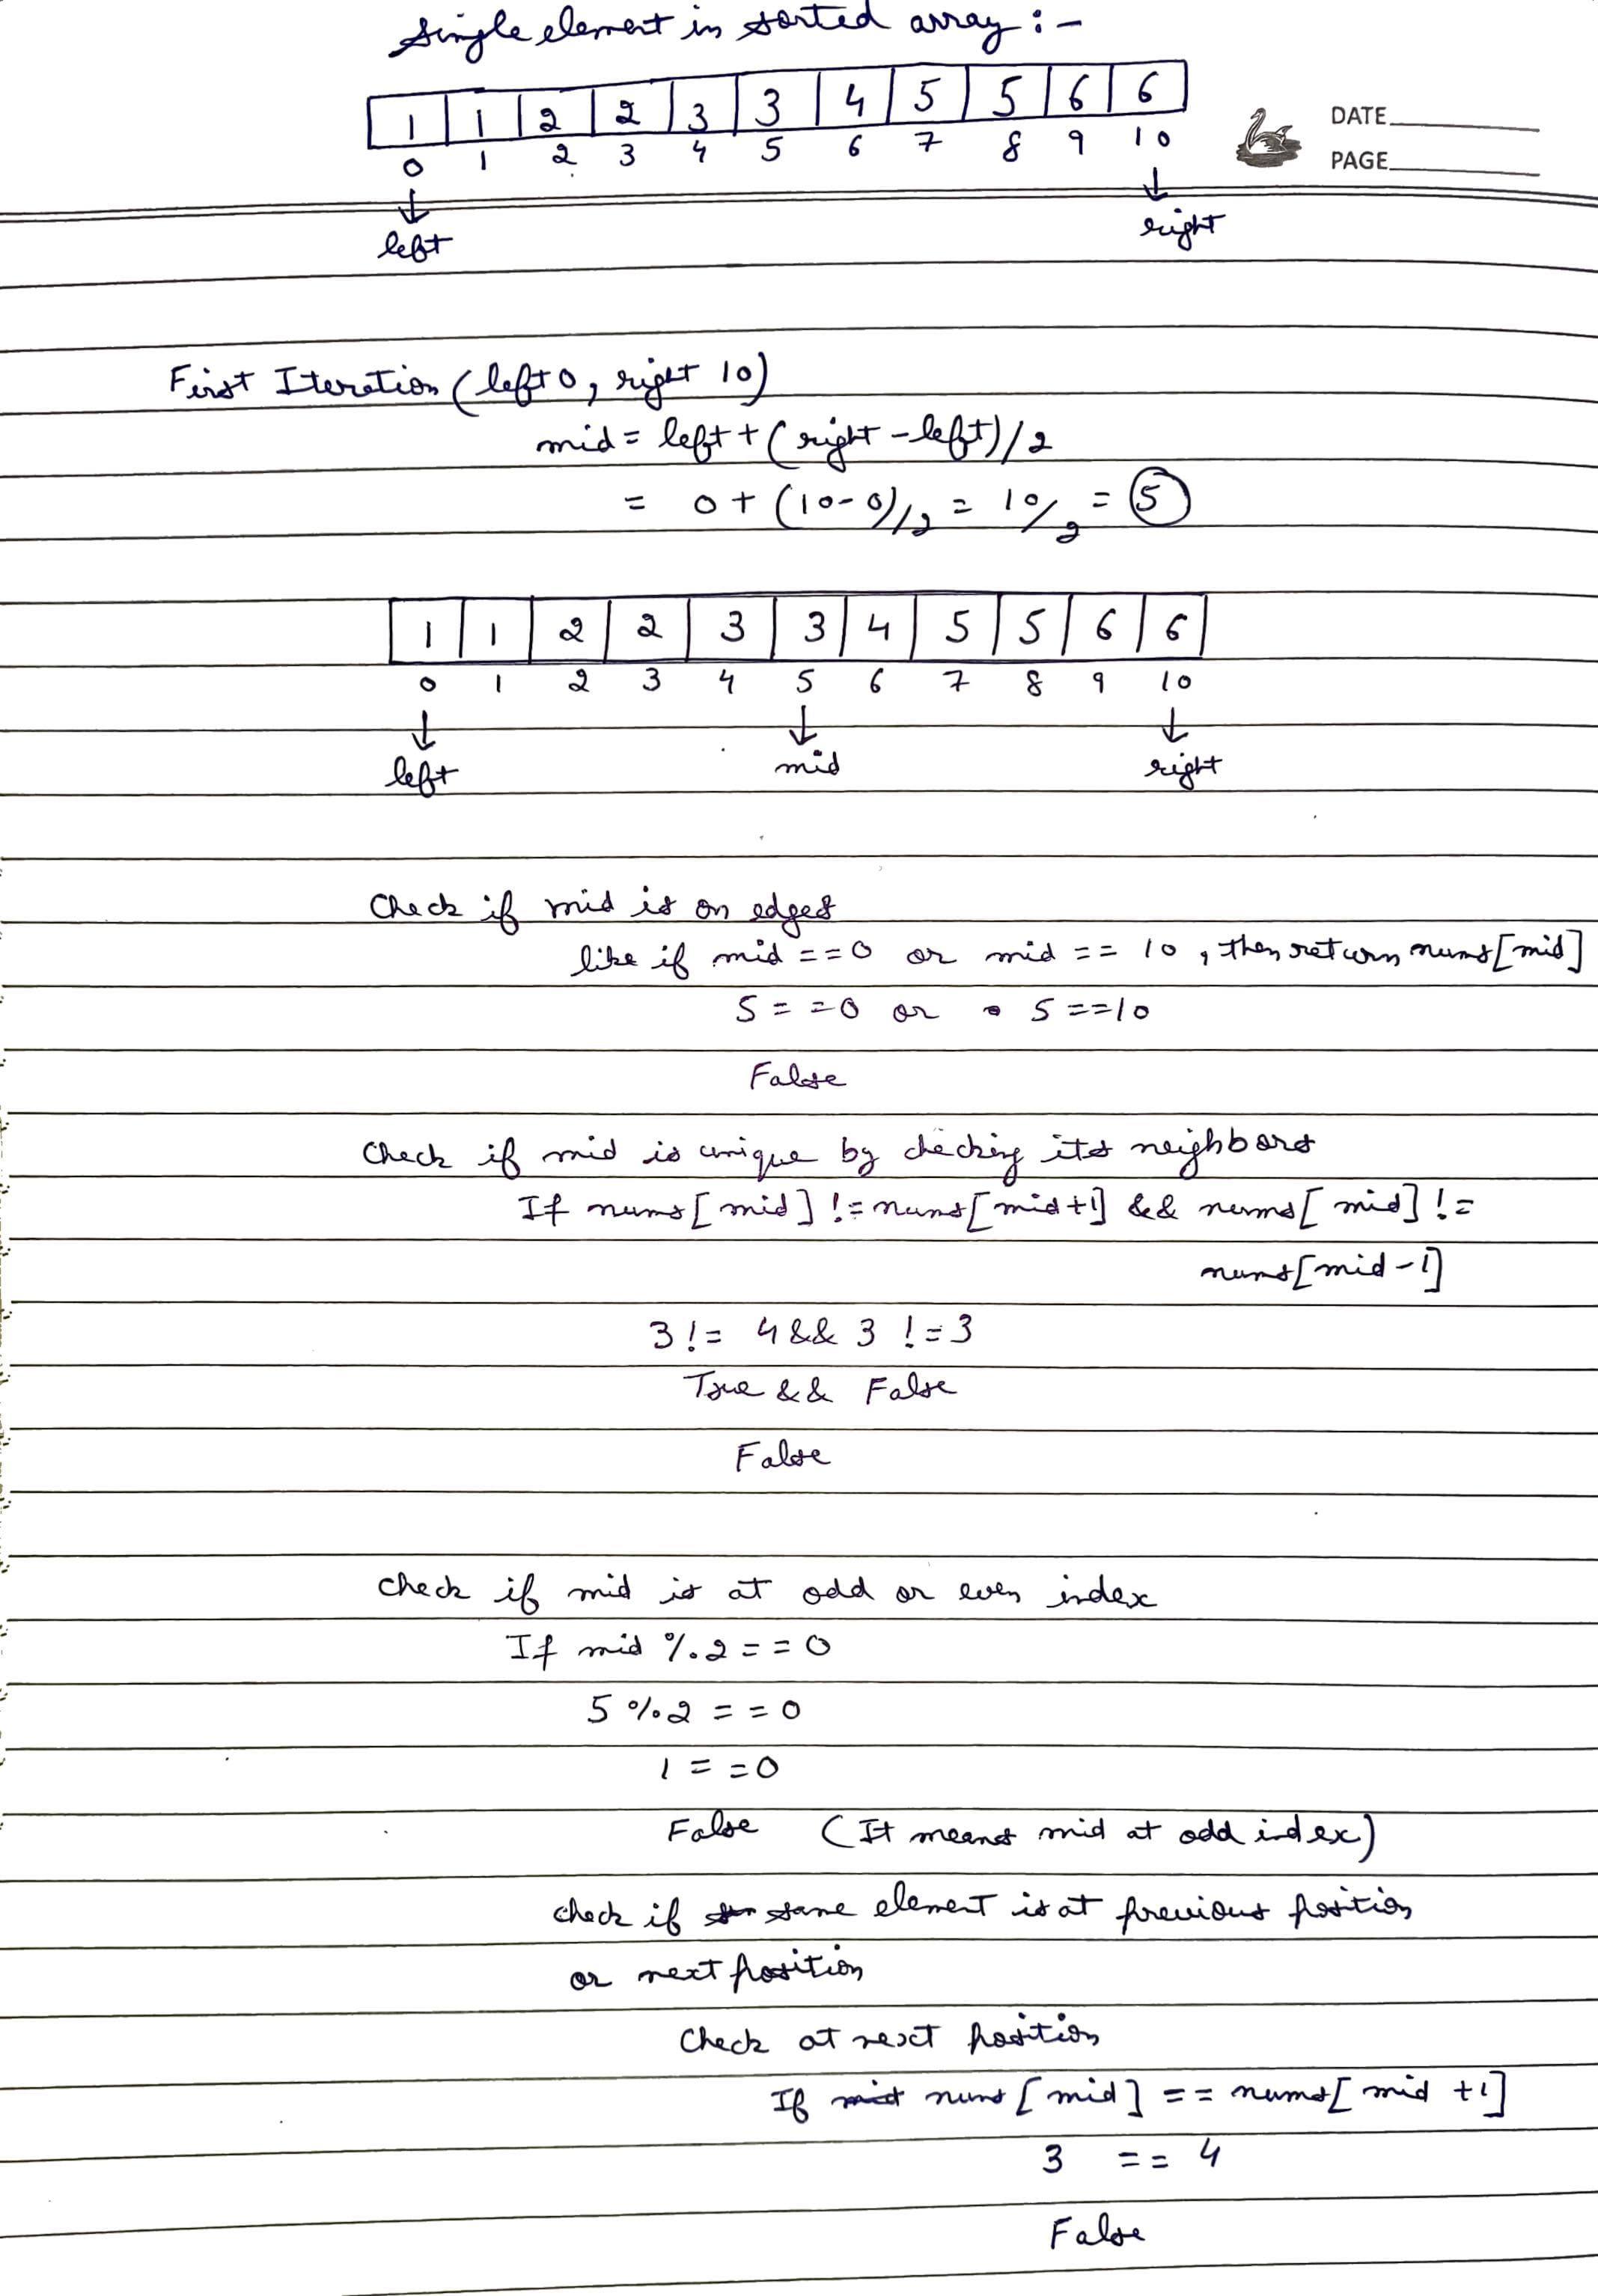 Single element in sorted array :-
1 1 2 2 3 3 4 5 5 6 6
0 1 2 3 4 5 6 7 8 9 10
DATE
PAGE
left right
First Iteration (left 0, right 10)
mid = left + (right - left)/2
= 0 + (10-0)/2 = 10/2 = 5
1 1 2 2 3 3 4 5 5 6 6
0 1 2 3 4 5 6 7 8 9 10
left mid right
Check if mid is on edges
like if mid == 0 or mid == 10, then return nums[mid]
5 == 0 or 5 == 10
False
Check if mid is unique by checking its neighbors
If nums[mid] != nums[mid+1] && nums[mid] !=
nums[mid-1]
3 != 4 && 3 != 3
True && False
False
check if mid is at odd or even index
If mid % 2 == 0
5 % 2 == 0
1 == 0
False (It means mid at odd index)
check if same element is at previous position
or next position
Check at next position
If nums[mid] == nums[mid +1]
3 == 4
False